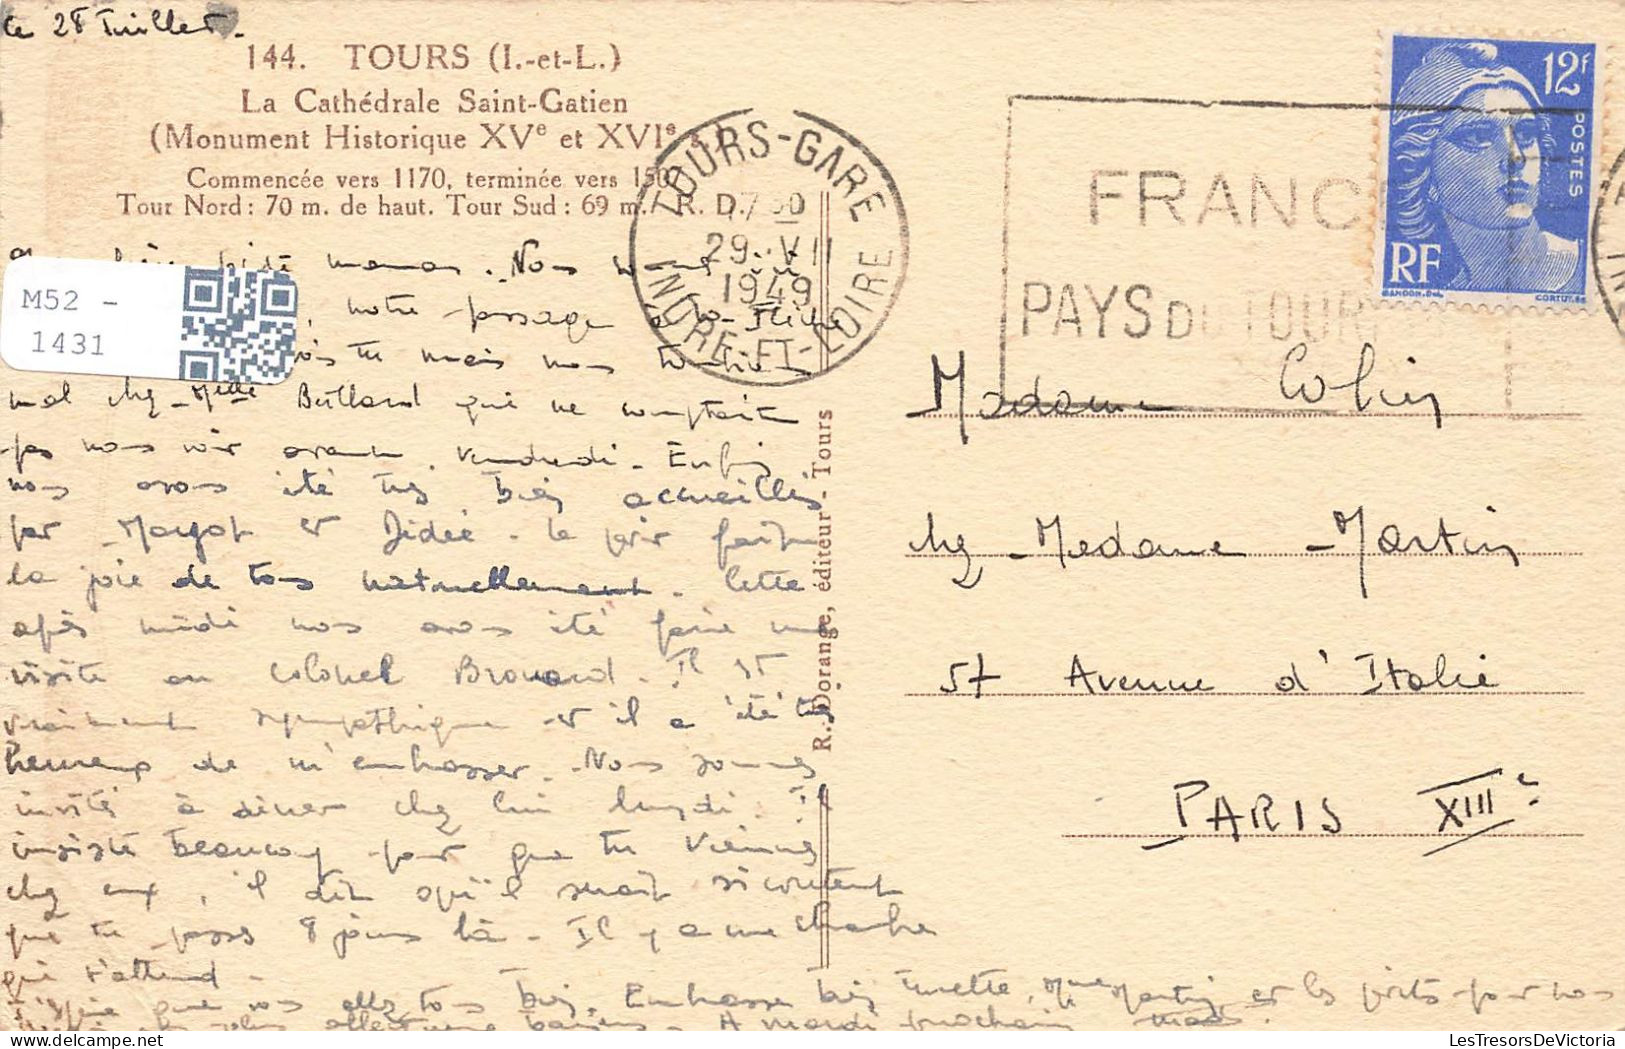 le 28 Juillet.
144. TOURS (I.-et-L.)
La Cathédrale Saint-Gatien
(Monument Historique XVe et XVIe s.)
Commencée vers 1170, terminée vers 1507
Tour Nord : 70 m. de haut. Tour Sud : 69 m. R. D.
maman. Nous
notre passage à
tu mais nous
mal chez Melle qui ne comptait
pas nous voir avant vendredi. Enfin
nous avons été très bien accueillis
par Margot et Dédée. Le petit fait
la joie de tous naturellement. Cette
après midi nous avons été faire une
visite au Colonel Brouard. Il est
vraiment sympathique et il a été très
heureux de m'embrasser. Nous sommes
invités à dîner chez lui lundi. Il
insiste beaucoup pour que tu viennes
chez eux, il dit qu'il serait si content
que tu passes 8 jours là. Il y a une chambre
qui t'attend.
J'espère que vous allez tous bien. Embrasse bien Ginette, Mme Martin et les petits pour nous
affectueux baisers. A mardi prochain
R. Dorange, éditeur - Tours
TOURS-GARE
29-VII
1949
INDRE-ET-LOIRE
FRANCE
PAYS DU TOURISME
12f
POSTES
RF
GANDON. Del.
CORTOT. sc
Madame Colin
chez Madame Martin
57 Avenue d'Italie
PARIS XIIIe
M52 -
1431
LesTresorsDeVictoria.com